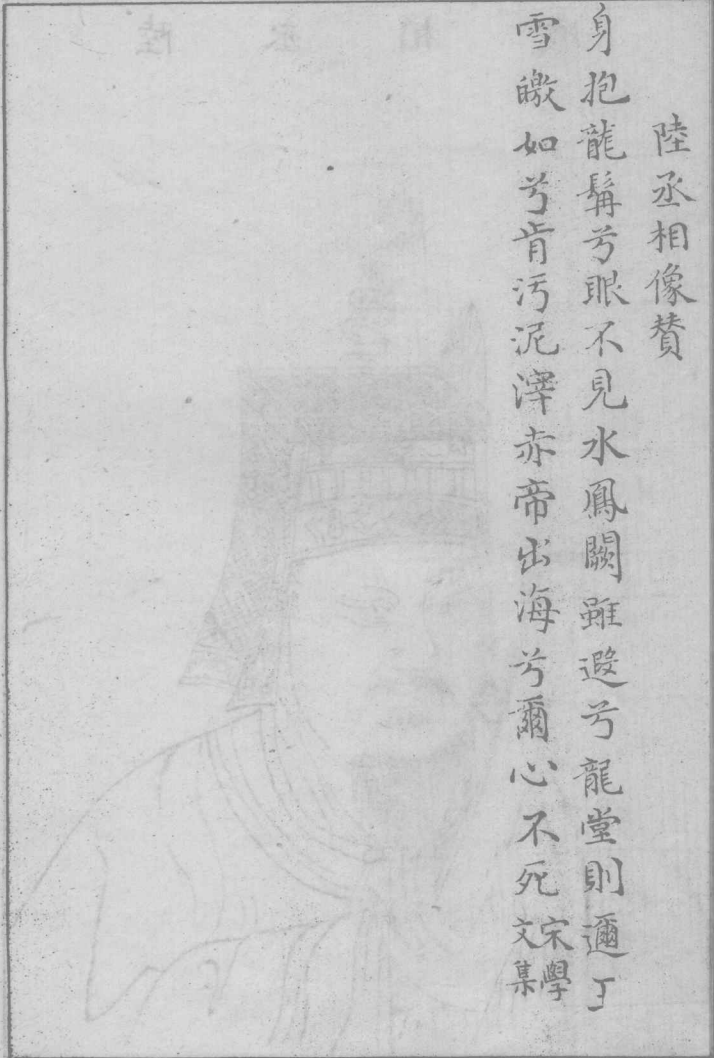 陸丞相像賛
身抱龍髯兮眼不見水鳳闕雖遐兮龍堂則邇
雪皦如兮肯污泥滓赤帝出海兮爾心不死
宋學
文集